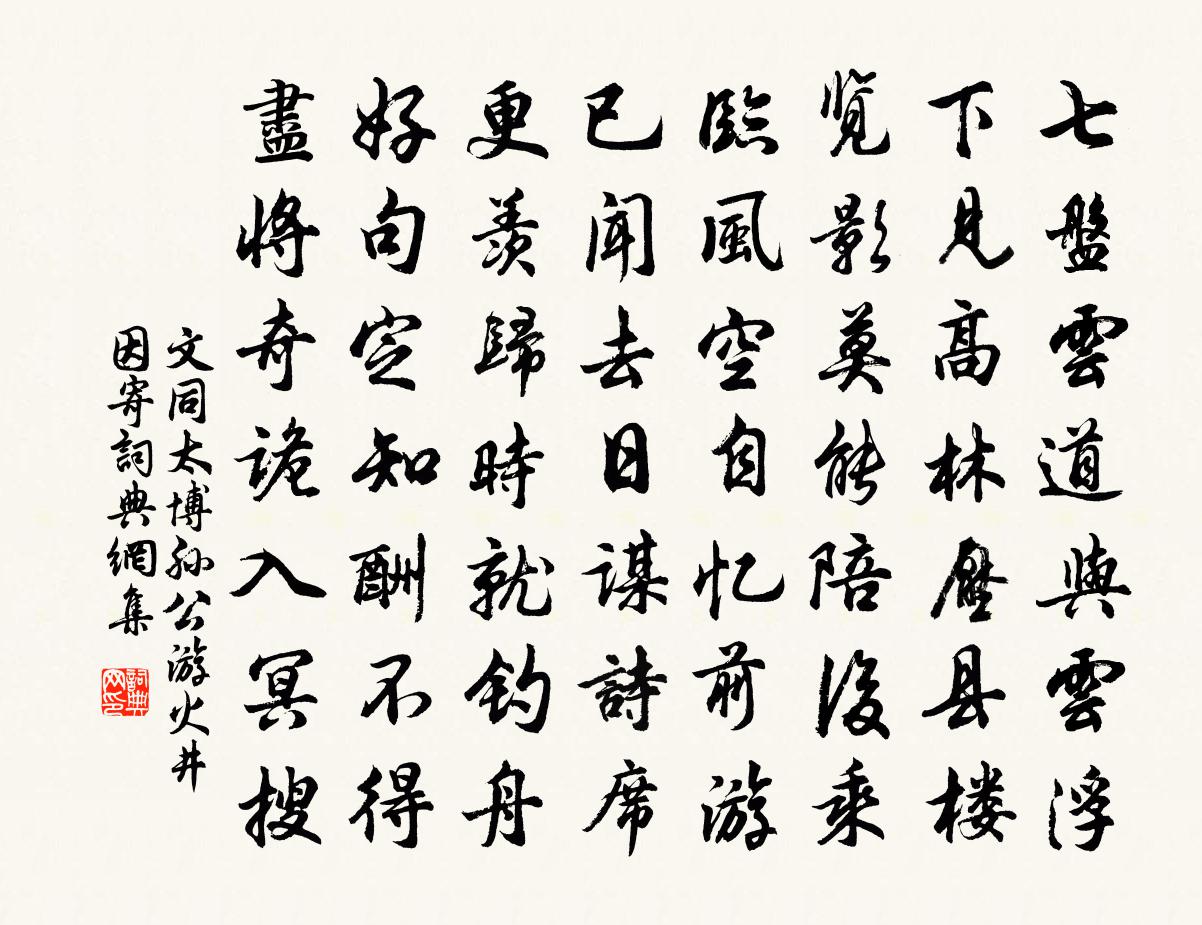 七盤雲道與雲浮
下見高林壓县楼
览影莫能陪後乘
臨風空自忆前游
已闻去日謀詩席
更羨歸時就钓舟
好句定知酬不得
盡將奇詭入冥搜
文同太博孙公游火井
因寄詞典網集
詞典网印